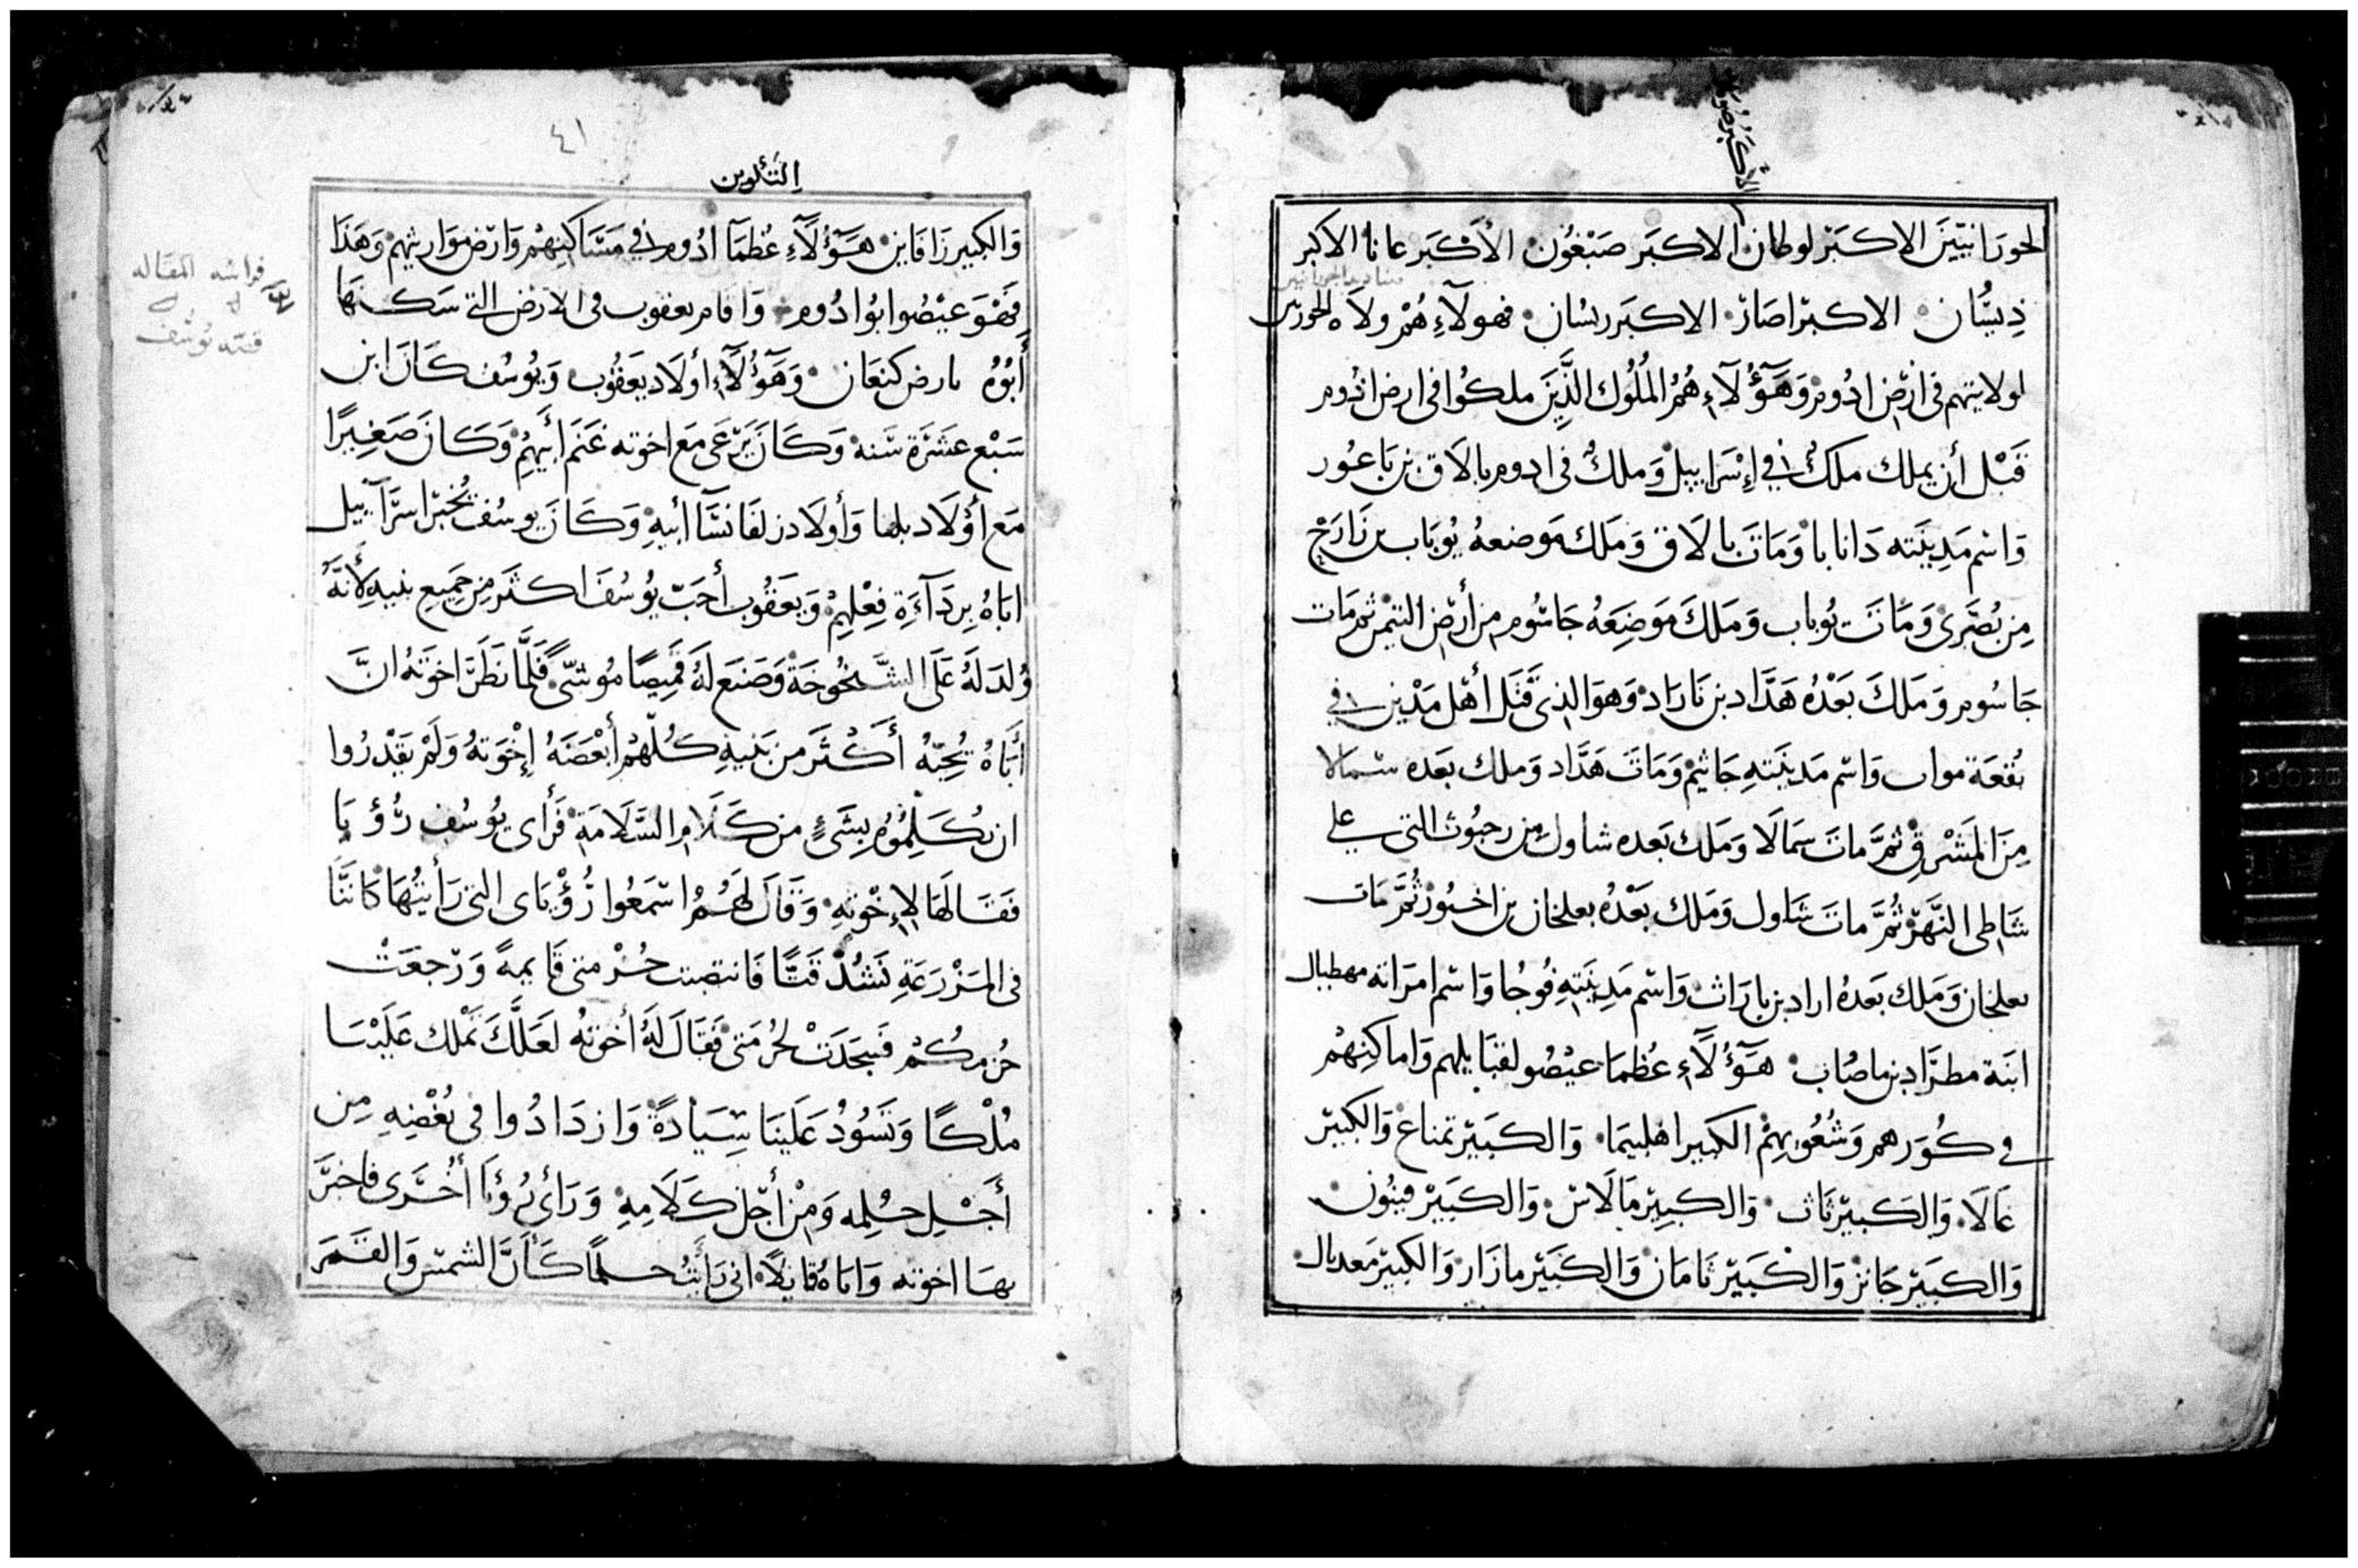 الحورَانِيّينَ الاكبَر لوطان الاكبَر صَبْغُون الأكبَر عانا الاكبر
ذِيسُان الاكبَر اصَار الاكبَر ريسان فهولآءِ هُمْ ولاَه الحورَى
لولايتهم فى ارْض ادُوم وَهَؤُلآءِ هُمُ المُلُوك الذَّينَ ملكُوا فى ارض ادُوم
قَبْل أن يملك ملكٌ في إِسْرَاييل وَملكَ فى ادوم بالاَق بن بَاعُور
وَاسْم مَدِينَته دَانابا وَمَاتَ بالاَق وَمَلَكَ مَوضعهُ يُوبَاب بن زَارَحْ
مِن بُصَرى وَمَاتَ يُوباب وَمَلَكَ مَوضِعَهُ جَاسُوم من أرْض التيمَن ثم مَات
جَاسُوم وَمَلَكَ بَعْدُه هَدَّاد بن بَارَاد وَهوَ الذى قَتَل أهْل مَدْين في
بُقعَة مواب وَاسْم مَدينَتهِ جَاثيم وَمَاتَ هَدَّاد وَملك بَعده سَمالا
مِنَ المَشْرِقِ ثُمَّ مَاتَ سَمَالاَ وَمَلك بَعده شاول مِن رحبُوث التى على
شَاطى النَّهَر ثُمَّ مَاتَ شَاول وَملك بَعْدُه بعلخان بن اخبُور ثُمَّ مَات
بعلخان وَمَلك بَعدُه اراد بن بارَاث وَاسْم مَدِينَتِهِ فُوجا وَاسْم امرَاته مهطبال
ابنَة مطرَاد بن ماصُاب هَؤُلآَءِ عُظمَا عيْصُو لقبَايلهم وَاماكنِهْم
في كُوَرهم وَشُعُوبِهْم الكبير اهليبَما وَالكَبيْر تمناع وَالكبيْر
عَالاَ وَالكَبيْر ثَات وَالكبِيْر مَالاَس وَالكَبِيْر فينُون
وَالكَبيْر جَانز وَالكَبيْر ثَامَان وَالكَبيْر مازَار وَالكَبيْر مَعديال
التَكوين
٤١
وَالكبير زَافَاين هَؤُلآَءِ عُظمَآ ادُوم في مَسَاكِنِهْم وَارْض مَوَاريثهم وَهَذَا
فَهْوَ عيْصُو ابُو ادُوم وَاقام يعقوب فى الارْض التى سَكنهَا
أَبُوُه بارض كنعَان وَهَؤُلآَءِ أولاَد يَعقُوب وَيُوسُف كَانَ ابن
سَبْع عَشَرَة سَنه وَكَانَ يَرْعَى مَع اخوته غَنَم أَبِيهِمْ وَكَانَ صَغِيرًا
مَع أوْلاَد بلها وَأولاَد زلفَا نسَآ أبيهِ وَكَانَ يوسُف يُخبر اسرَآييل
ابَاهُ بِردَآءَةِ فِعْلِهِمْ وَيَعَقُوب أحَبّ يُوسُفَ اكثَر مِن جَمِيعِ بنيهِ لأَنَّهُ
وُلدَ لَهُ عَلَى الشَّيخُوخَة وَصَنَع لَهُ قَميِصًا مُوَشّىً فَلَمَّا نَظَرَ اخوَتهُ انَّ
أَبَاهُ يُحِبّهُ أَكْثَر من بَنيهِ كلّهمْ أبْغَضَهُ إخْوَتهُ وَلَمْ يَقْدرُوا
ان يُكَلِّمُوهُ بِشَىٍء من كَلاَمِ السَّلاَمَة فَرَأى يُوسُف رُؤيَا
فَقَالَهَا لإِخْوَتِهِ وَقَالَ لَهُمُ اسْمَعُوا رُؤْيَاى التى رَأَيتُهَا كَانّنَا
فى المَزْرَعَةِ نَشُدْ قَتًّا فَانتصبت حُزْمتى قَايمةً وَرَجعَتْ
حُزمكُمْ فَسجَدَتْ لحُزمَتى فَقَالَ لَهُ أخوَتهُ لعَلَّكَ تَمْلك عَلَيْنَا
مُلْكًا وَتَسُوُدُ عَلَينَا سِيَادَةً وَازدَادُوا فى بُغْضِهِ مِن
أَجْلِ حُلمِه وَمِنْ أَجْل كَلاَمِهِ وَرَأَى رُؤيَا أُخْرَى فاخبَرَ
بهَا اخوَته وَابَاهُ قايلاً انى رَأيْتُ حلمًا كَأَنَّ الشمْس وَالقَمَر
قراءته المقاله
قصّه يُوسُف